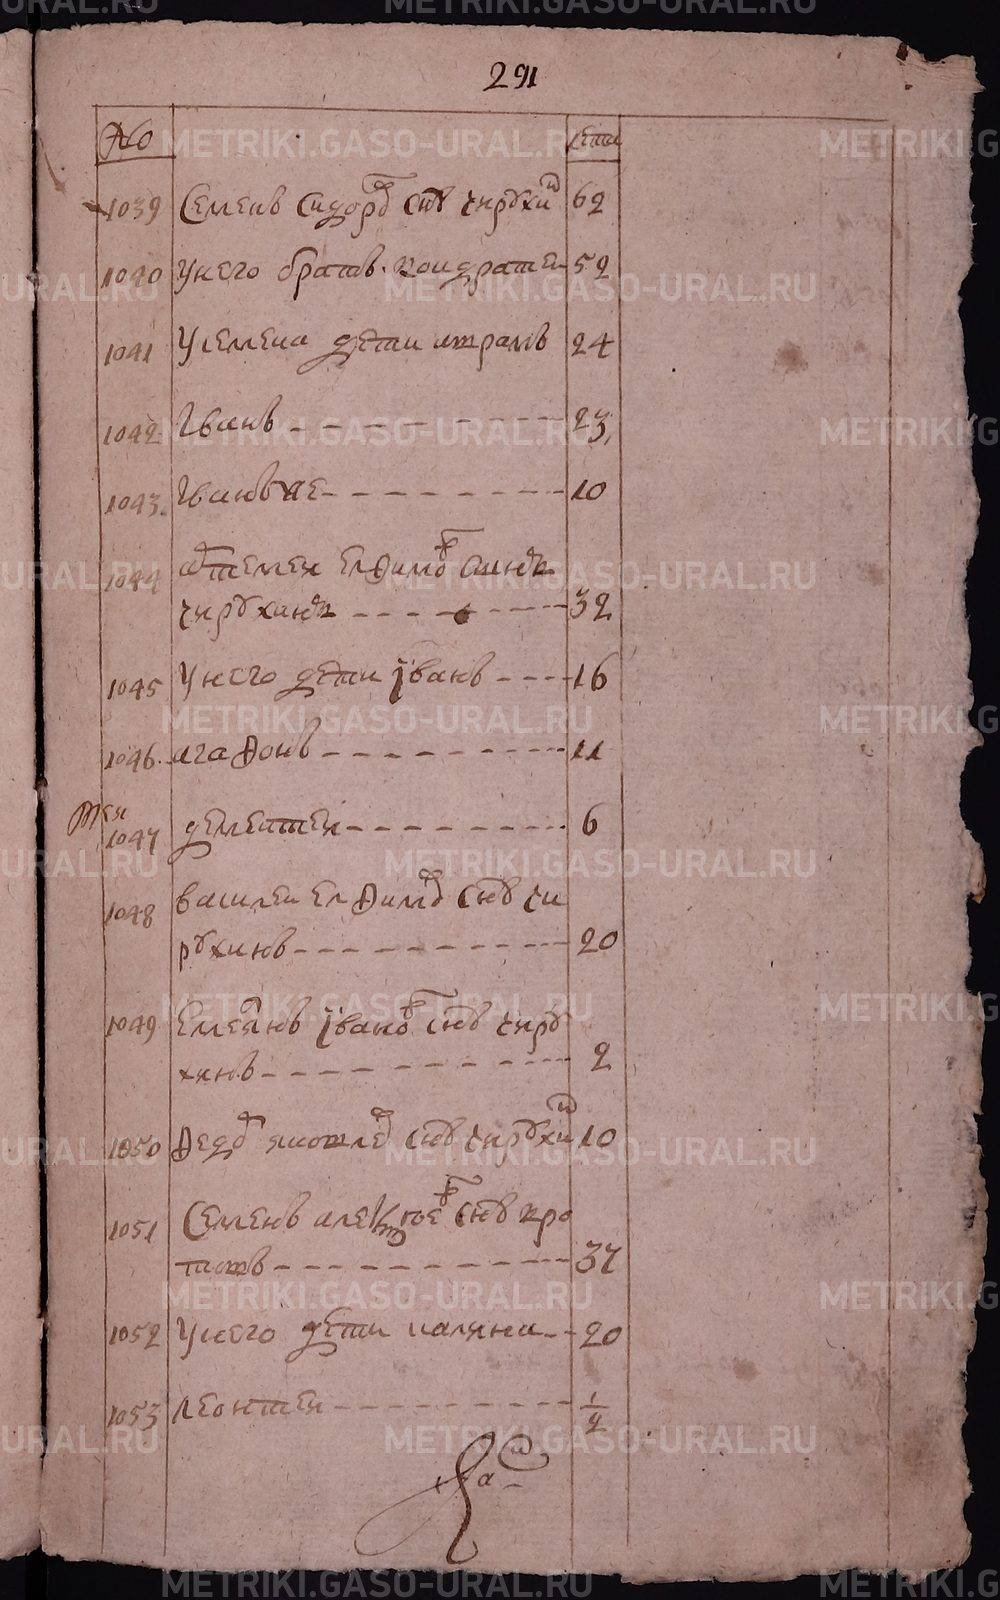 291
№ лета
1039 Семенъ Сидоровъ снъ чирухин 62
1040 У него братъ кондратеи 52
1041 У семена дети
1042 Iванъ 23
1043 Iванъ же 10
1044 артемеи елфимовъ снъ
чирухинъ 32
1045 У него дети iванъ 16
1046 агафонъ 11
1047 дементеи 6
1048 василеи елфимовъ снъ чи
рухинъ 20
1049 Емелянъ iвановъ снъ чиру
хинъ 2
1050 федоръ снъ чирухин 10
1051 Семенъ алексеевъ снъ кро
татовъ 37
1052 У него дети 20
1053 леонтеи 1/2
METRIKI.GASO-URAL.RU